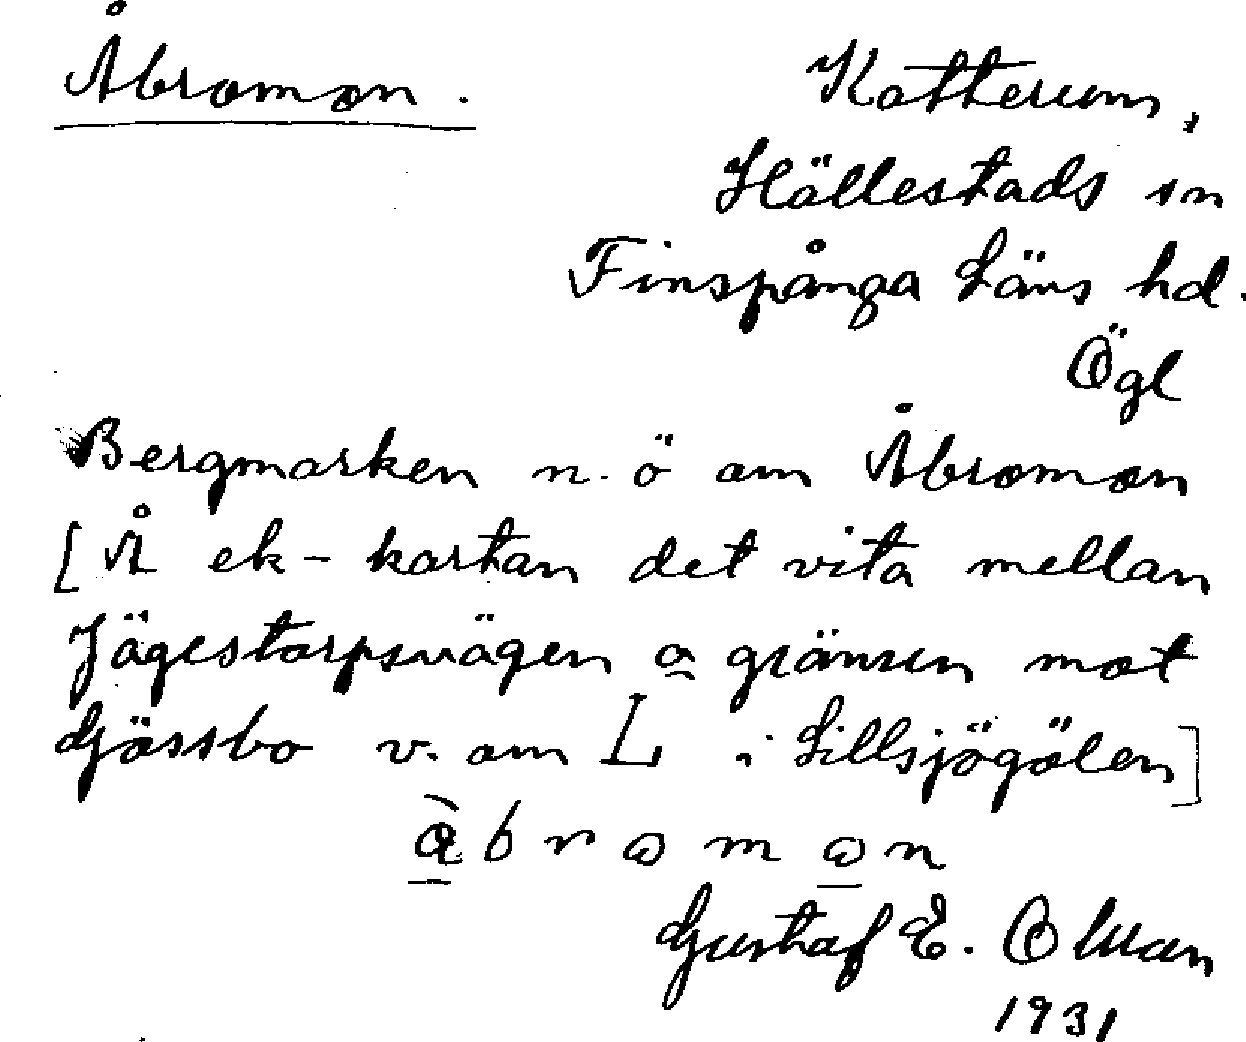 Åbromon.
Katterum,
Hällestads sn
Finspånga läns hd.
Ögl
Bergmarken n.ö om Åbromon
[Å ek-kartan det vita mellan
Jägestorpsvägen o gränsen mot
Gössbo v. om L i Lillsjögölen]
Gustaf E. Olman
1931